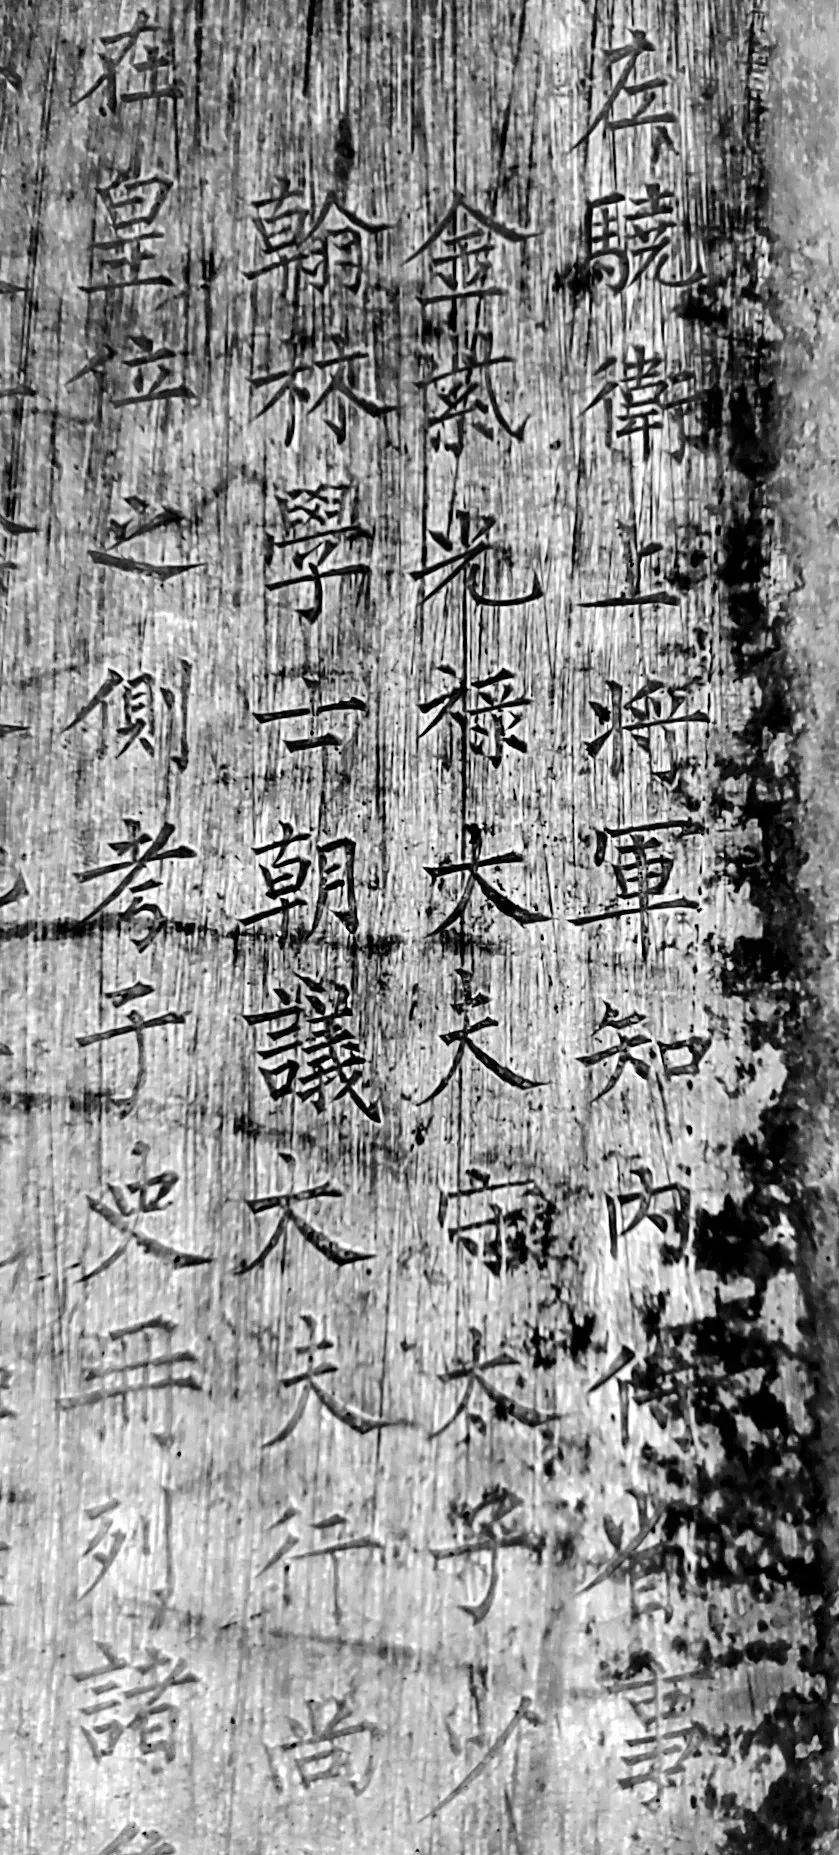 左驍衛上將軍知內侍省事
金紫光祿大夫守太子少
翰林學士朝議大夫行尚
在星位之側考于史冊列諸